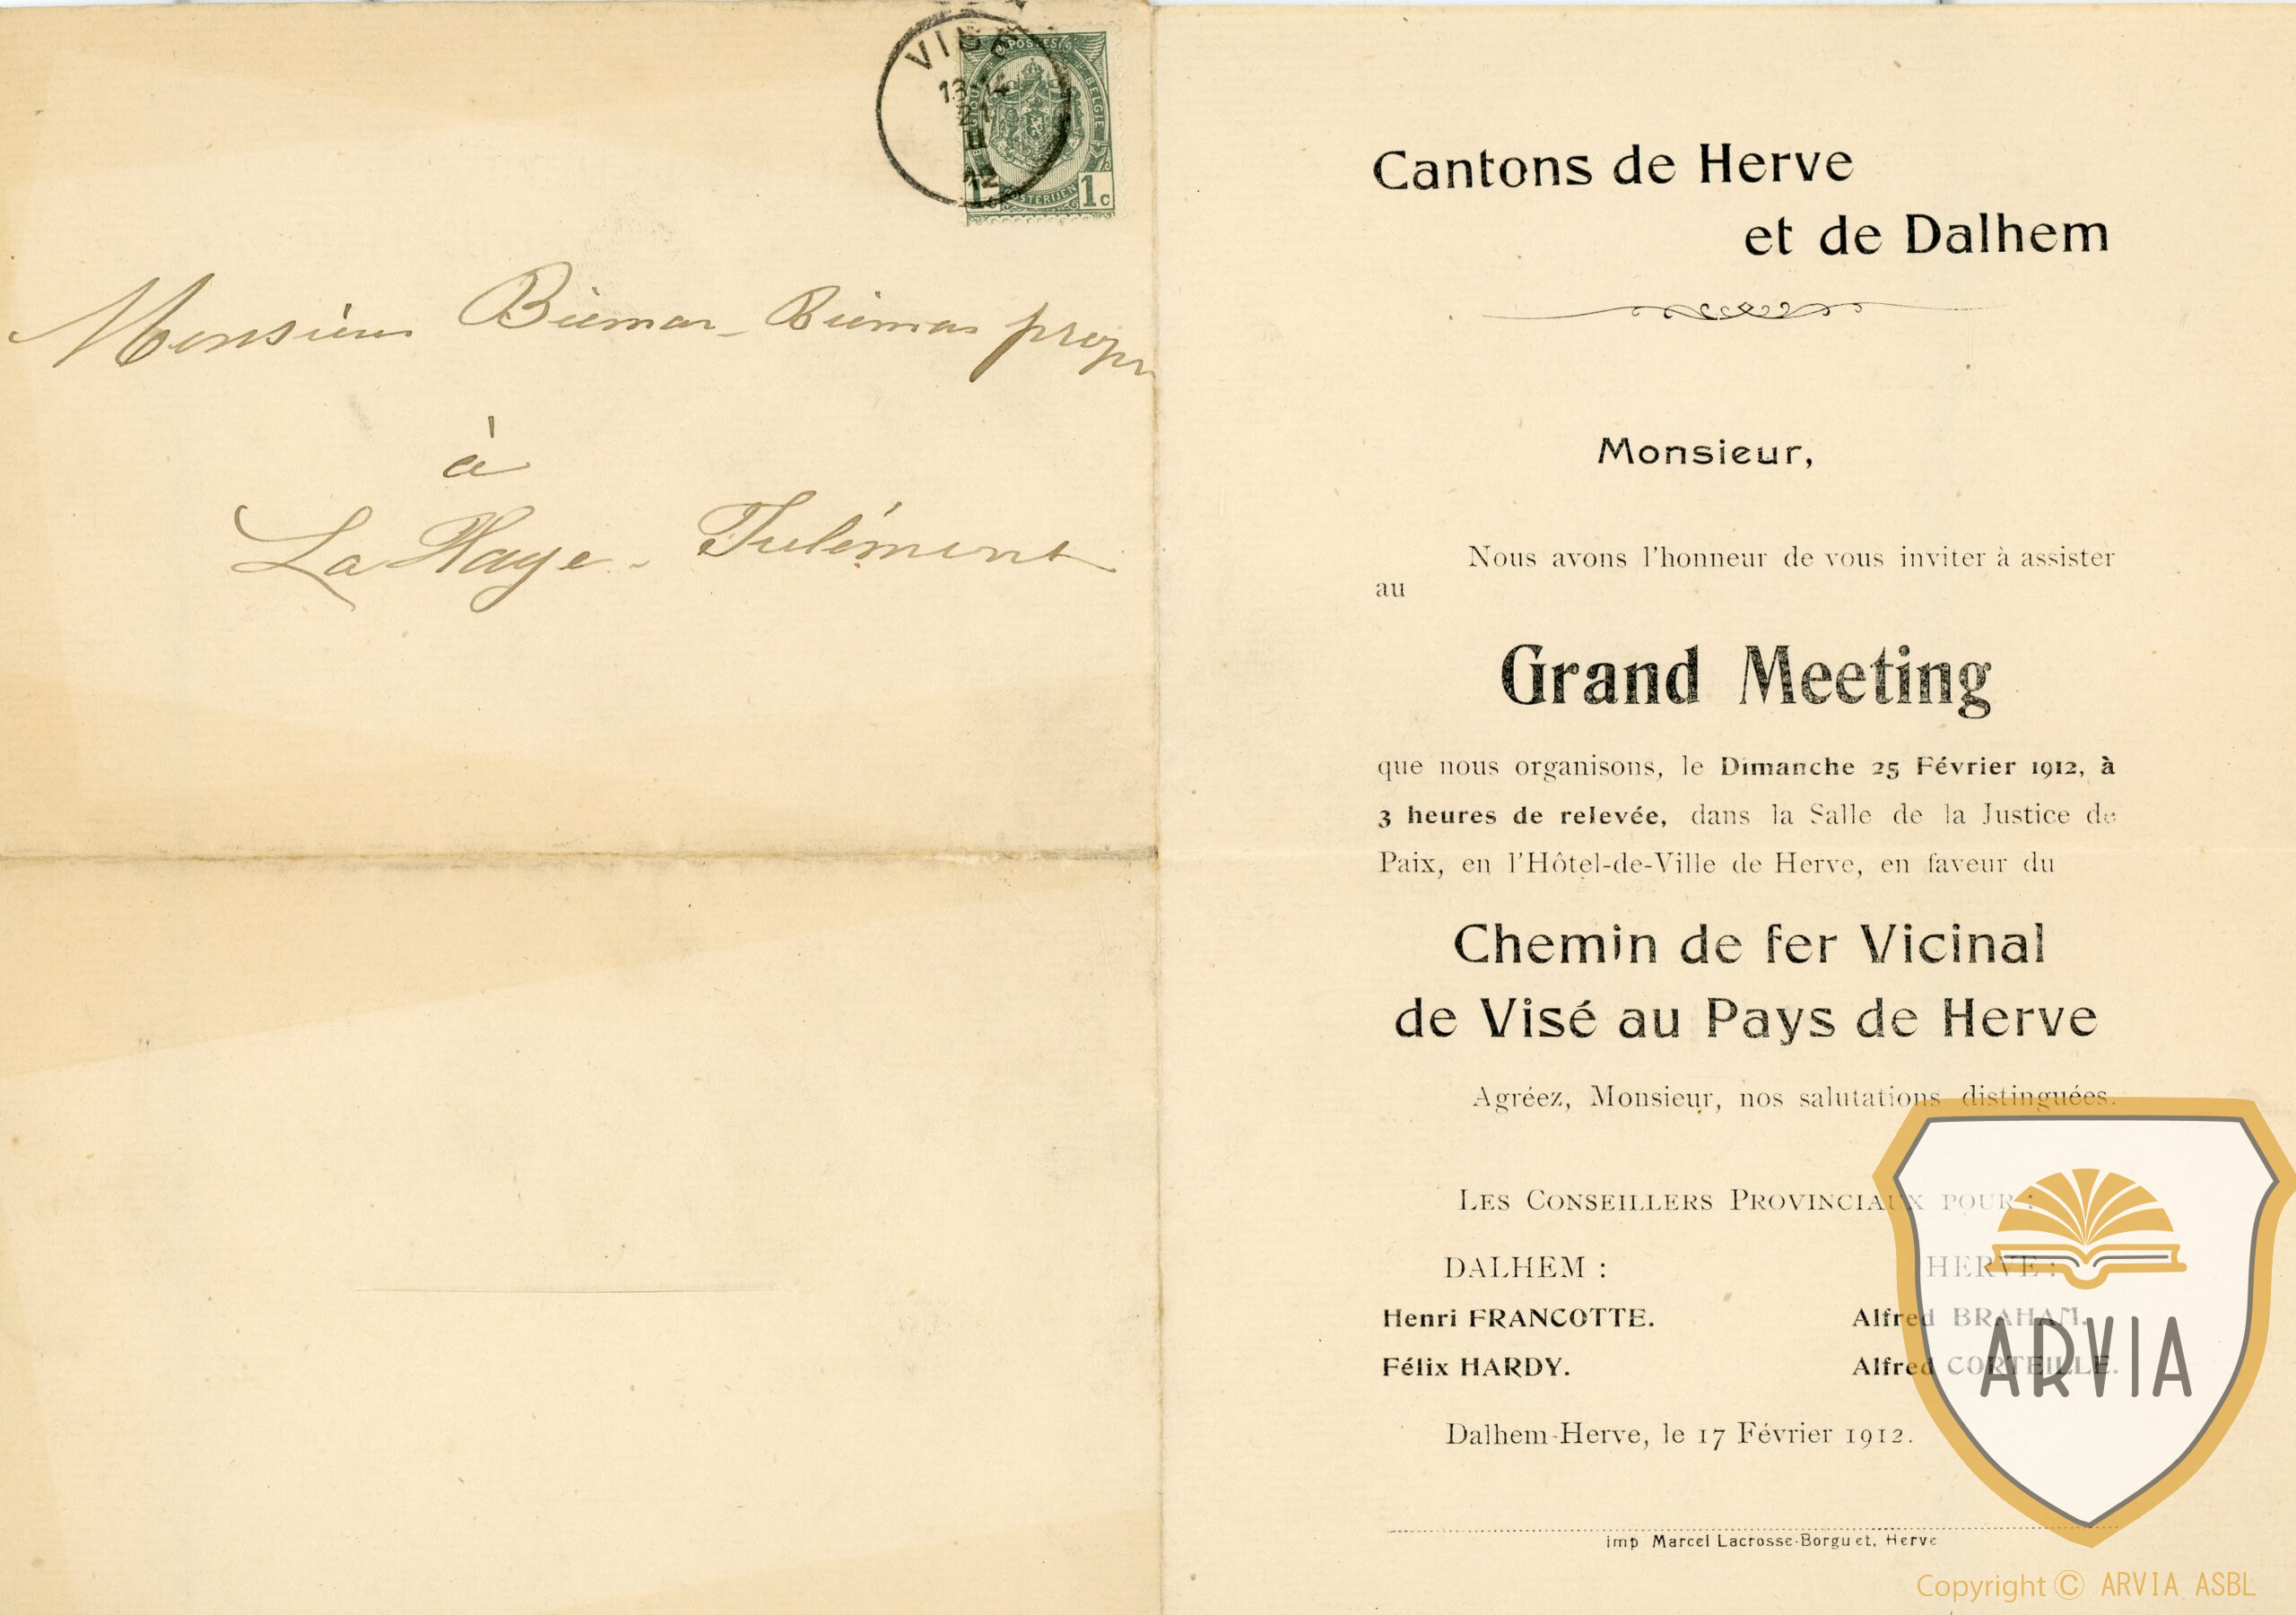 VISÉ
13-14
21
II
12
POSTES
BELGIE
1c
1c
Monsieur Biemar-Biemar propr
à
La Haye-Julémont
Cantons de Herve
et de Dalhem
Monsieur,
Nous avons l'honneur de vous inviter à assister
au
Grand Meeting
que nous organisons, le Dimanche 25 Février 1912, à
3 heures de relevée, dans la Salle de la Justice de
Paix, en l'Hôtel-de-Ville de Herve, en faveur du
Chemin de fer Vicinal
de Visé au Pays de Herve
Agréez, Monsieur, nos salutations distinguées.
LES CONSEILLERS PROVINCIAUX POUR :
DALHEM : HERVE :
Henri FRANCOTTE. Alfred BRAHAM.
Félix HARDY. Alfred CORTEILLE.
Dalhem-Herve, le 17 Février 1912.
imp Marcel Lacrosse-Borguet, Herve
ARVIA
Copyright © ARVIA ASBL